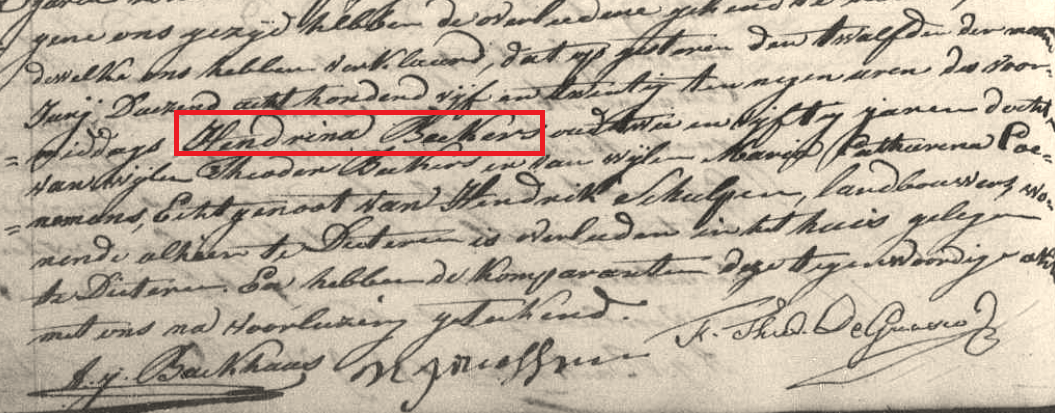 gene ons gezijd hebben de overleedene gekend te
dewelke ons hebben verklaard, dat op gisteren den twalfden der
Junij Duizend acht hondend vijf en twintig ten negen uren des voor-
=middags Hendrina Beckers oud twee en vijftig jaren docht
van wijlen Theodor Beckers en van wijlen Maria Catharina Coe-
=nemans, Echtgenoot van Hendrik Schulpen, landbouwers, wo-
nende alhier te Dieteren is overleeden in het huis gelegen
te Dieteren. En hebben de komparanten deze tegenwoordige akt
met ons na voorlezing geteekend.
A. J. Backhaus
F. Thed. De Guasco